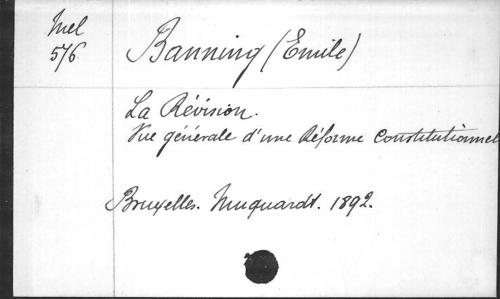 Mel
576
Banning (Emile)
La Révision.
Vue générale d'une Réforme Constitutionnel
Bruxelles. Muquardt. 1892.